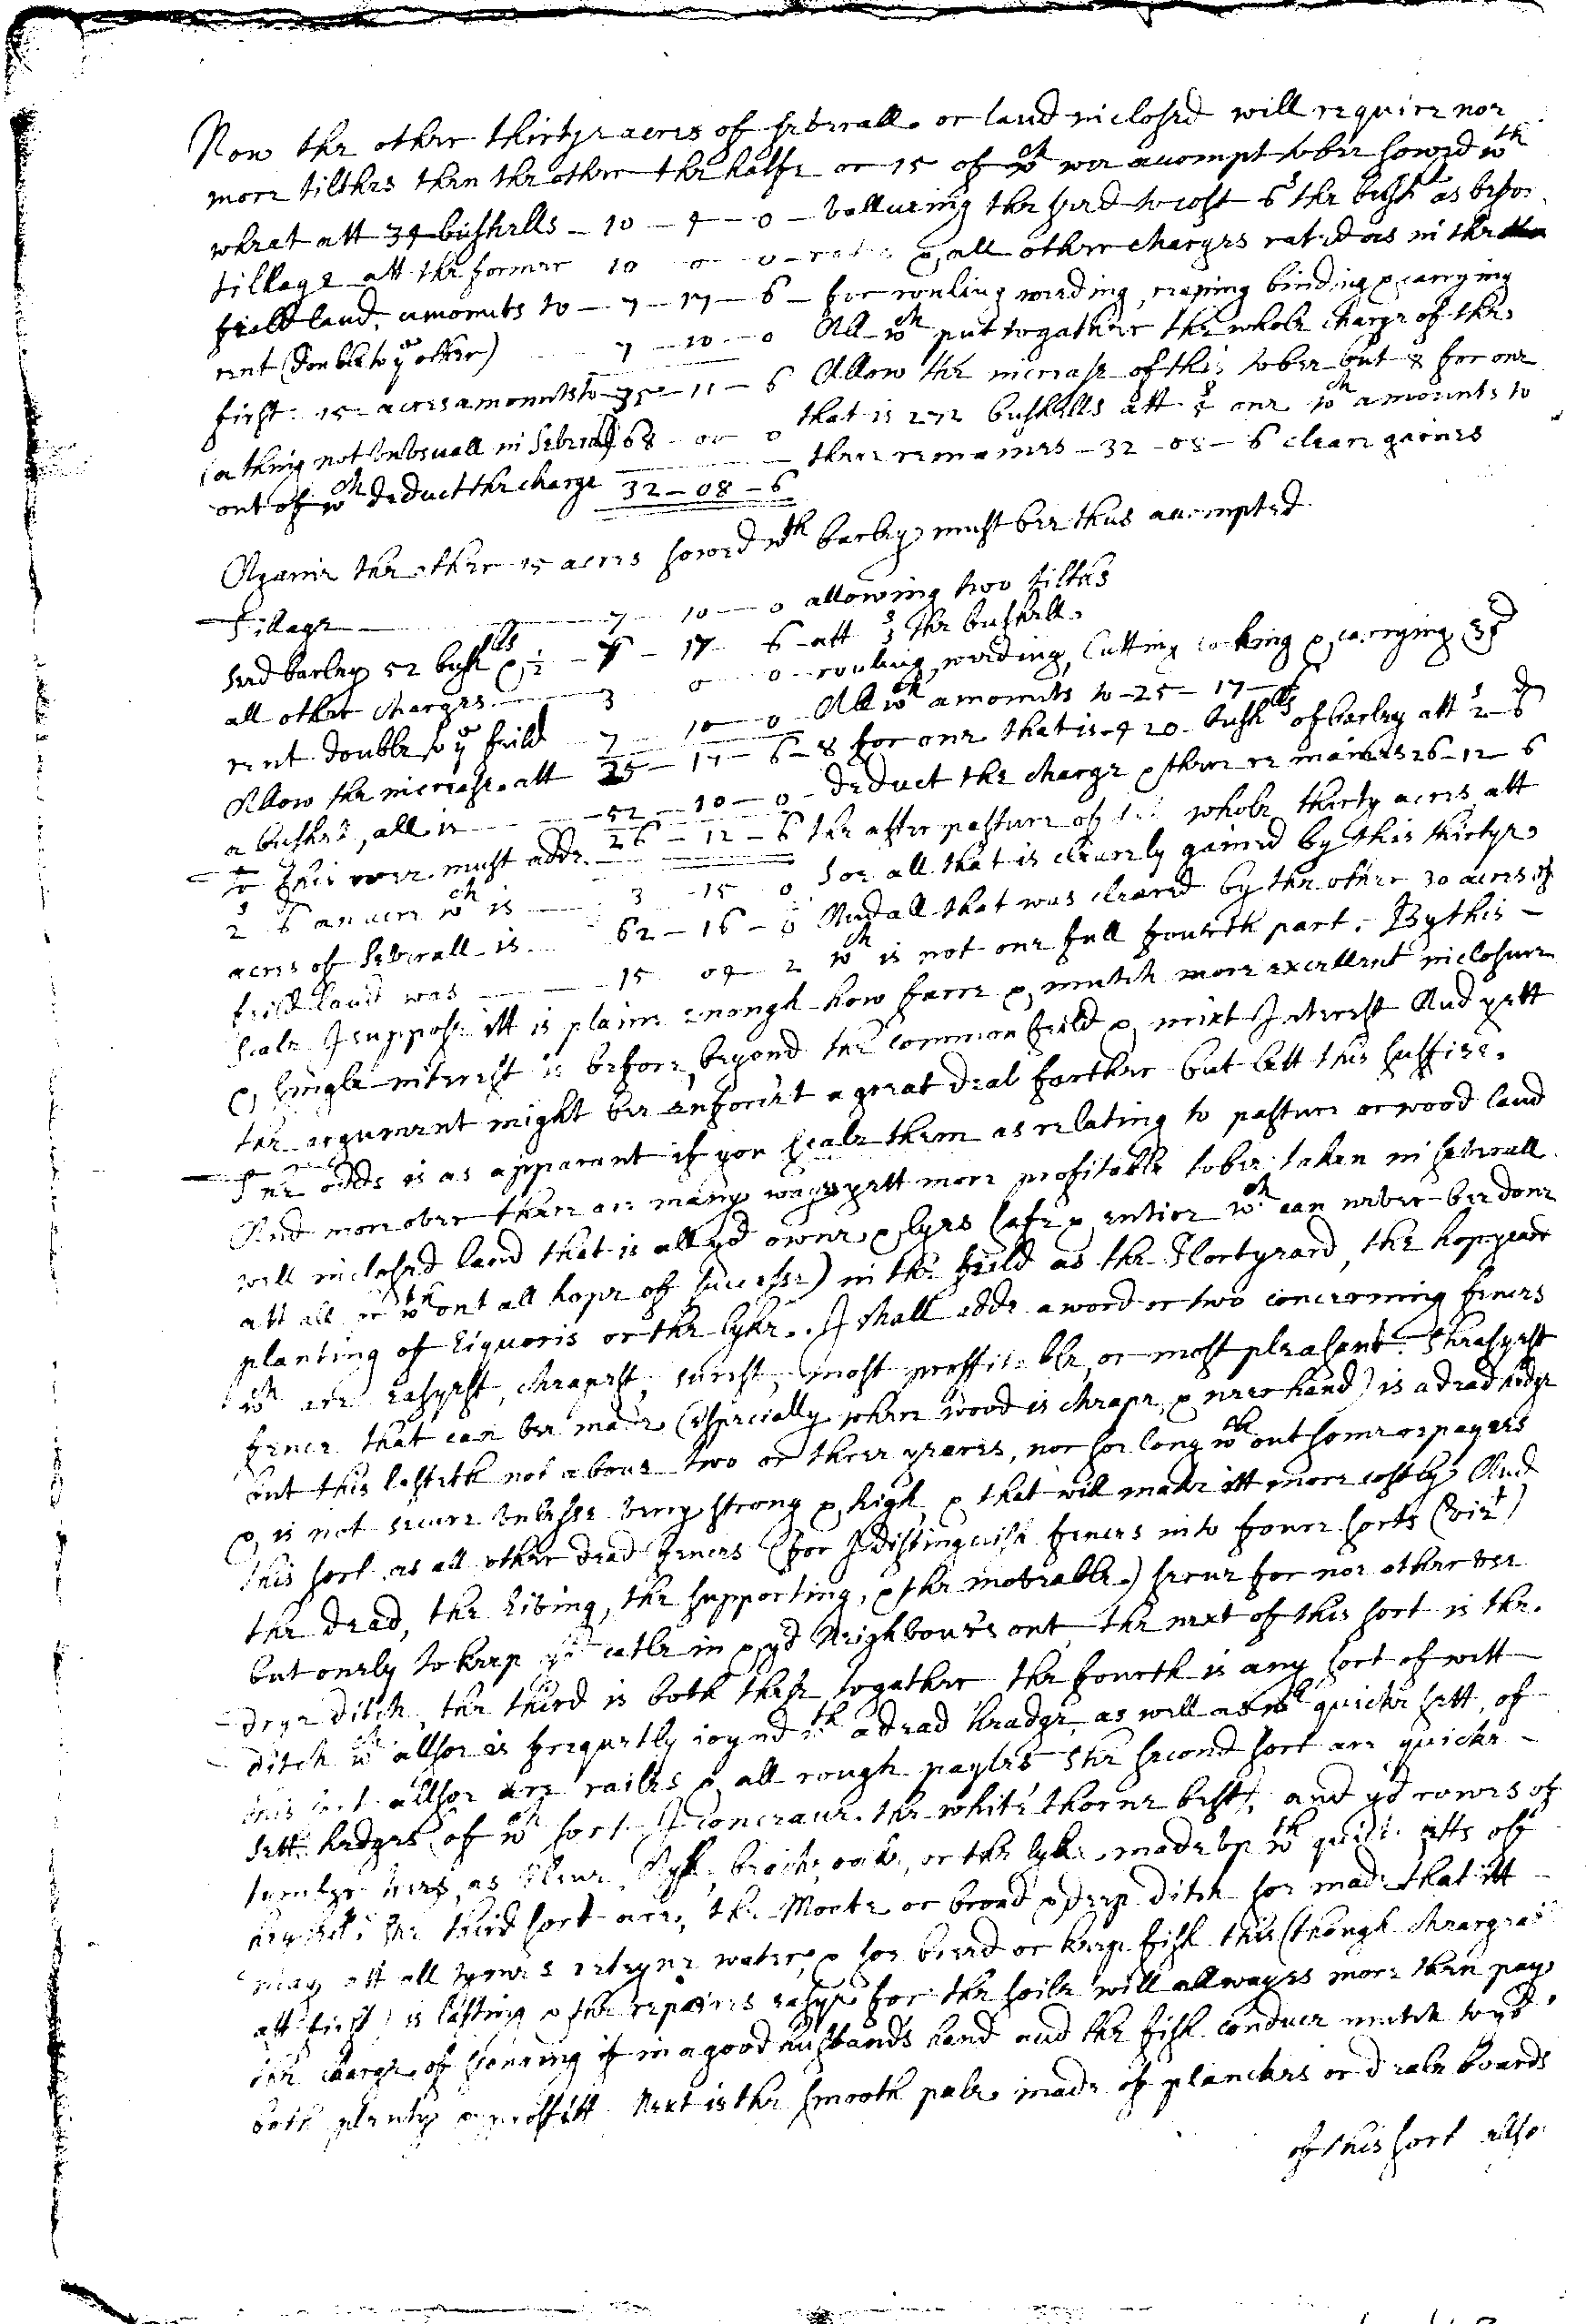 Now the other thirtye acres of severall or land inclosed will requier noe
more tilthes then the other the halfe or 15 of wch wee accompt to bee sowed wth
wheat att 34 bushells - 10 - 4 - 0 - vallueing the seed to cost 6s the bush as befor
tillage att the former 10 0 0 - rate & all other charges rated as in the
feild land, amounts to - 7 - 17 - 6 - for rouling weeding, reaping binding & carrying
rent (double to ye other) 7 - 10 - 0 All wch put togather the whole charge of the
first 15 acres amounts to - 35 - 11 - 6 Allow the increase of this to bee but 8 for one
(a thing not unusuall in severall) 68 - 00 - 0 that is 272 bushells att 5s one wch amounts to
out of wch deduct the charge 32 - 08 - 6 - there remaines - 32 - 08 - 6 cleare gaines
Againe the other 15 acres sowed wth barley must bee thus accompted
Tillage - 7 - 10 - 0 allowing two tilths
seed barley 52 bushlls & ½ - 7 - 17 - 6 - att 3s the bushell
all other charges - 3 0 0 - rouling, weeding, Cutting cocking & carrying
rent double to ye feild - 7 - 10 - 0 - All wch amounts to - 25 - 17 - 6
Allow the increase att 25 - 17 - 6 - 8 for one that is 420 bushlls of barley att 2s - 6d
a bushell, all is - 52 - 10 - 0 - deduct the charge & there remaines 26 - 12 - 6
To this wee must adde 26 - 12 - 6 the after pasture of the whole thirty acres att
2s 6 an acre wch is - 3 - 15 0 Soe all that is cleerely gained by this thirtye
acres of severall is - 62 - 16 - 0 And all that was cleared by the other 30 acres of
feild land was - 15 04 2 wch is not one full fourth part. By this -
scale I suppose itt is plaine enough how farre & mutch more excellent inclosure
& single interest is before, beyond the common feild & mixt Interest And yett
the argument might bee enforc't a great deal farther but lett this suffise.
The odds is as apparant if you scale them as relating to pasture or wood land
And moreover there are many wayes yett more profitable to bee taken in severall
well inclosed land that is all yor owne & lyes safe & entier wch can never bee done
att all or wthout all hope of successe) in the feild as the Hortyeard, the hopyeard
planting of Liquoris or the lyke. I shall adde a word or two concerning fences
wch are easyest, cheapest, surest, most proffitable, or most pleasant. The easyest
fence that can bee made (especially where wood is cheape, & neer hand) is a dead hedge
but this lasteth not above two or three yeares, nor soe long wthout some repayers
& is not secure unlesse very strong & high & that will make itt more costly And
this sort as all other dead fences (for I distinguish fences into foure sorts (vizt)
the dead, the Living, the supporting, & the moveable) serve for noe other use
but onely to keep yor catle in & yor Neighbours out, the next of this sort is the
drye ditch, the third is both these togather the fourth is any sort of wett
ditch wch allsoe is frequetly ioynd wth a dead headge, as well as wth quicke sett, of
this sort allsoe are railes & all rough payles The second sort are quicke -
sett hedges of wch sort I conceaue the white thorne best, and yor rowes of
tymber trees, as Elme, Ashe, beache, oake, or the lyke made up wth quick setts of
The third sort are, the Moate or broad & deep ditch soe made that itt
may att all tymes reteyne water, & soe breed or keepe fish this (though cheargeable
att first) is lasting & the repaires easye for the soile will allwayes more then pay
the charge of scouring if in a good husbands hand and the fish conduce mutch to yor
both plenty & proffitt Next is the smooth pale made of planckes or deale boards
of this sort allso